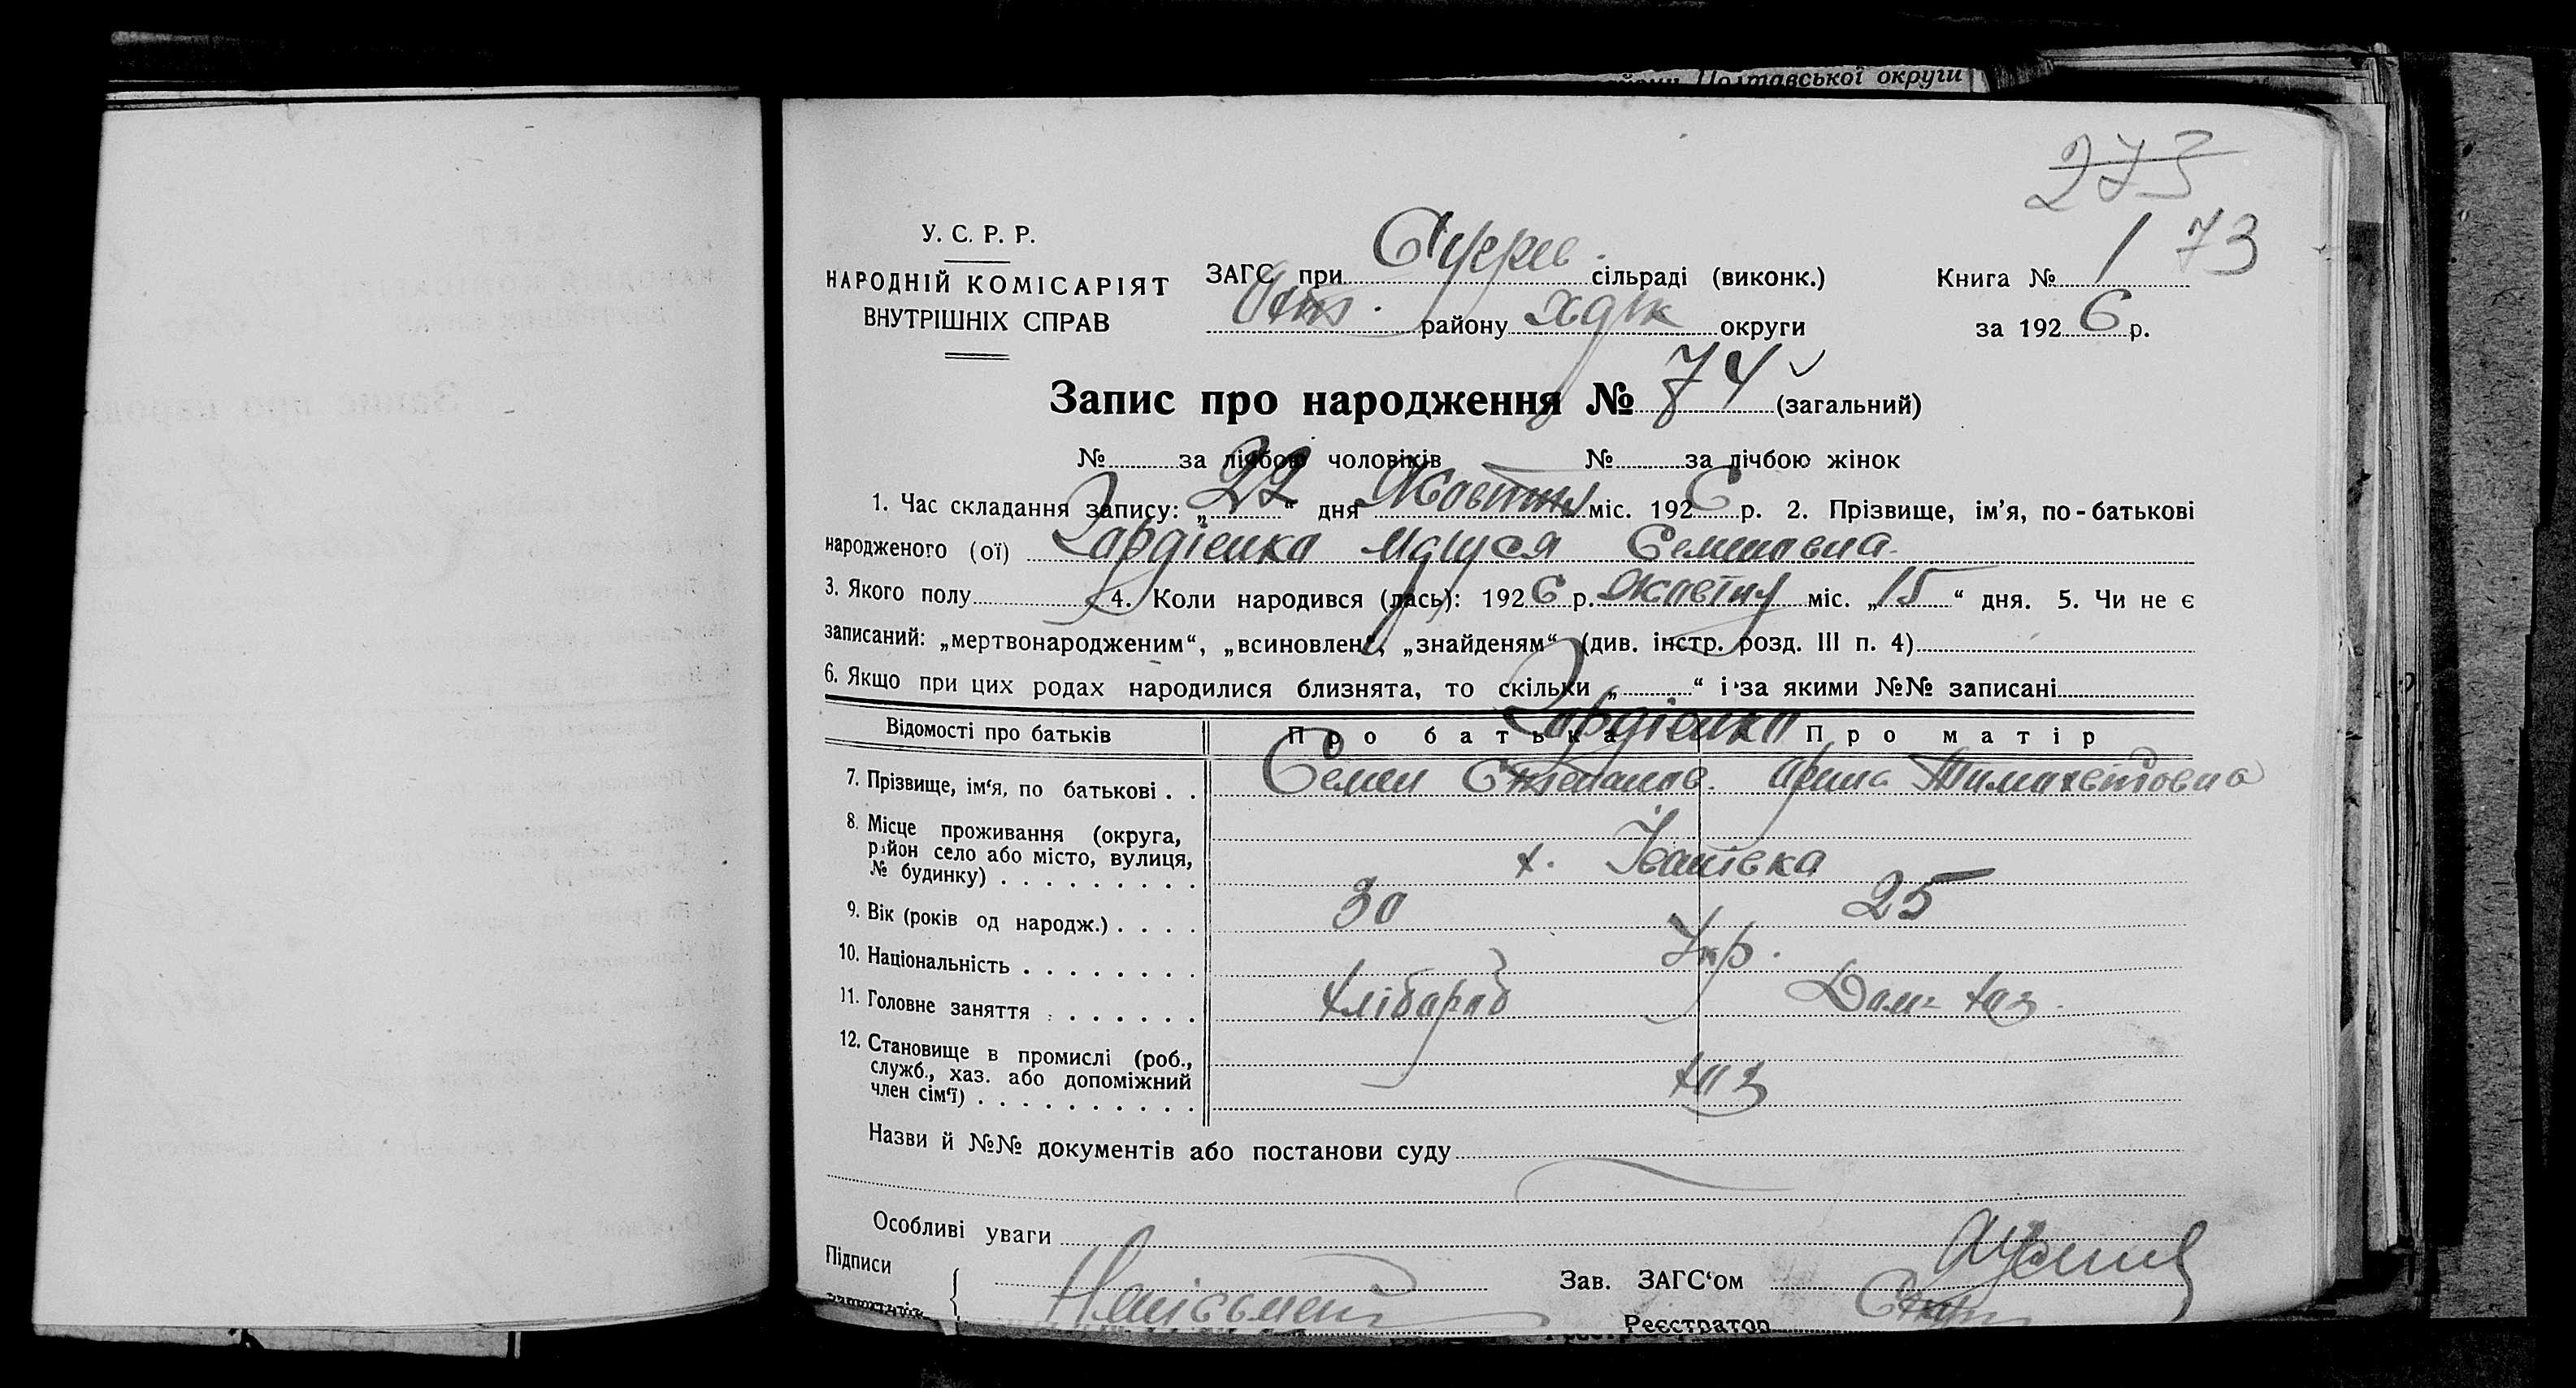 Полтавської округи
273
73
У. С. Р. Р.
НАРОДНІЙ КОМІСАРІЯТ
ВНУТРІШНІХ СПРАВ
ЗАГС при сільраді (виконк.)
району округи
Книга № 1
за 1926 р.
Запис про народження № 74 (загальний)
№ за лічбою чоловіків № за лічбою жінок
1. Час складання запису: „22“ дня Жовтня міс. 1926 р. 2. Прізвище, ім'я, по-батькові
народженого (ої) Маруся Семеновна
3. Якого полу 4. Коли народився (лась): 1926 р. жовтня міс. „15“ дня. 5. Чи не є
записаний: „мертвонародженим“, „всиновлен“, „знайденям“ (див. інстр. розд. III п. 4)
6. Якщо при цих родах народилися близнята, то скільки „ “ і за якими №№ записані
Відомості про батьків Про батька Про матір
7. Прізвище, ім'я, по батькові . . Семен Степанов. Арина
8. Місце проживання (округа,
район село або місто, вулиця,
№ будинку) х. Іванівка
9. Вік (років од народж.) . . . . 30 25
10. Національність Укр.
11. Головне заняття хлібороб Дом. хаз.
12. Становище в промислі (роб.,
служб., хаз. або допоміжний
член сім'ї) хаз
Назви й №№ документів або постанови суду
Особливі уваги
Підписи
Неписьмен
Зав. ЗАГС'ом
Реєстратор